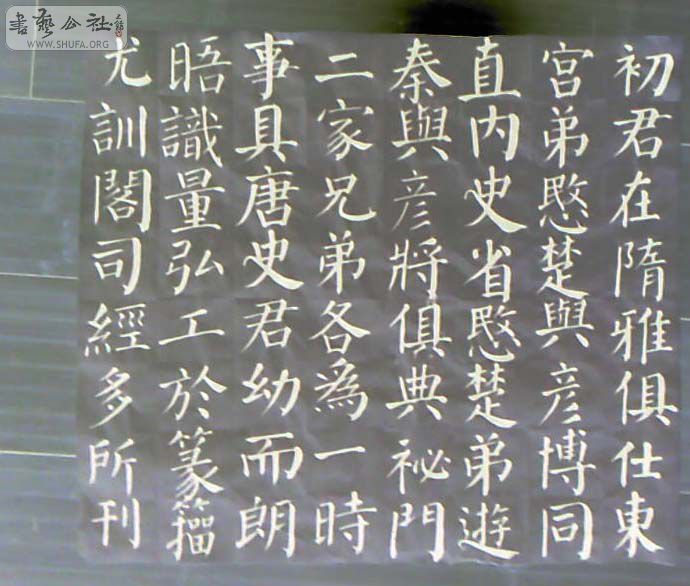 書藝公社
WWW.SHUFA.ORG
初君在隋雅俱仕東
宮弟愍楚與彦博同
直内史省愍楚弟遊
秦與彦將俱典祕門
二家兄弟各為一時
事具唐史君幼而朗
晤識量弘工於篆籀
尤訓閣司經多所刊